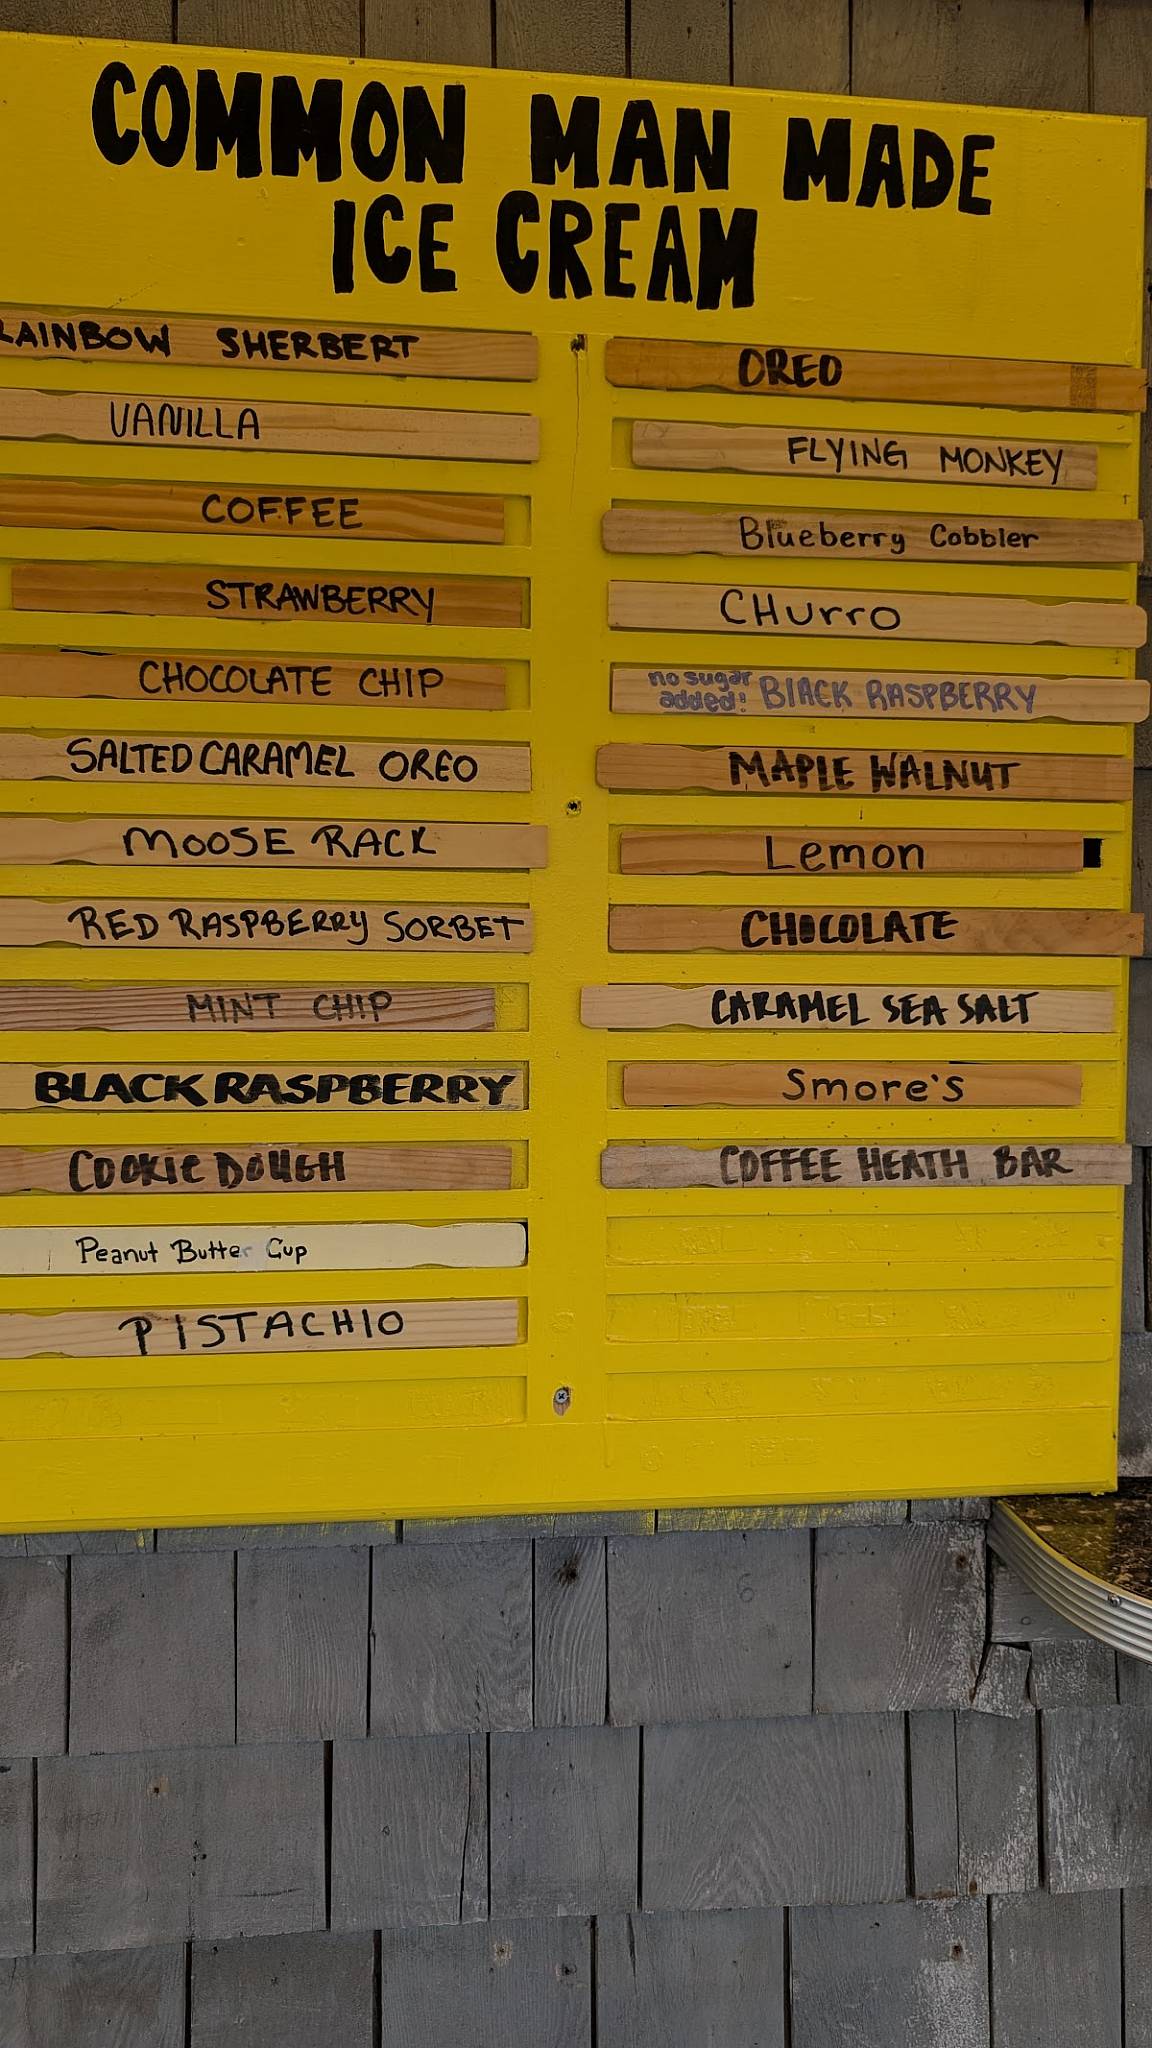 COMMON MAN MADE
ICE CREAM
RAINBOW SHERBERT
VANILLA
COFFEE
STRAWBERRY
CHOCOLATE CHIP
SALTED CARAMEL OREO
MOOSE RACK
RED RASPBERRY SORBET
MINT CHIP
BLACK RASPBERRY
COOKIE DOUGH
Peanut Butter Cup
PISTACHIO
OREO
FLYING MONKEY
Blueberry Cobbler
CHurro
no sugar
added! BlACK RASPBERRY
MAPLE WALNUT
Lemon
CHOCOLATE
CARAMEL SEA SALT
Smore's
COFFEE HEATH BAR